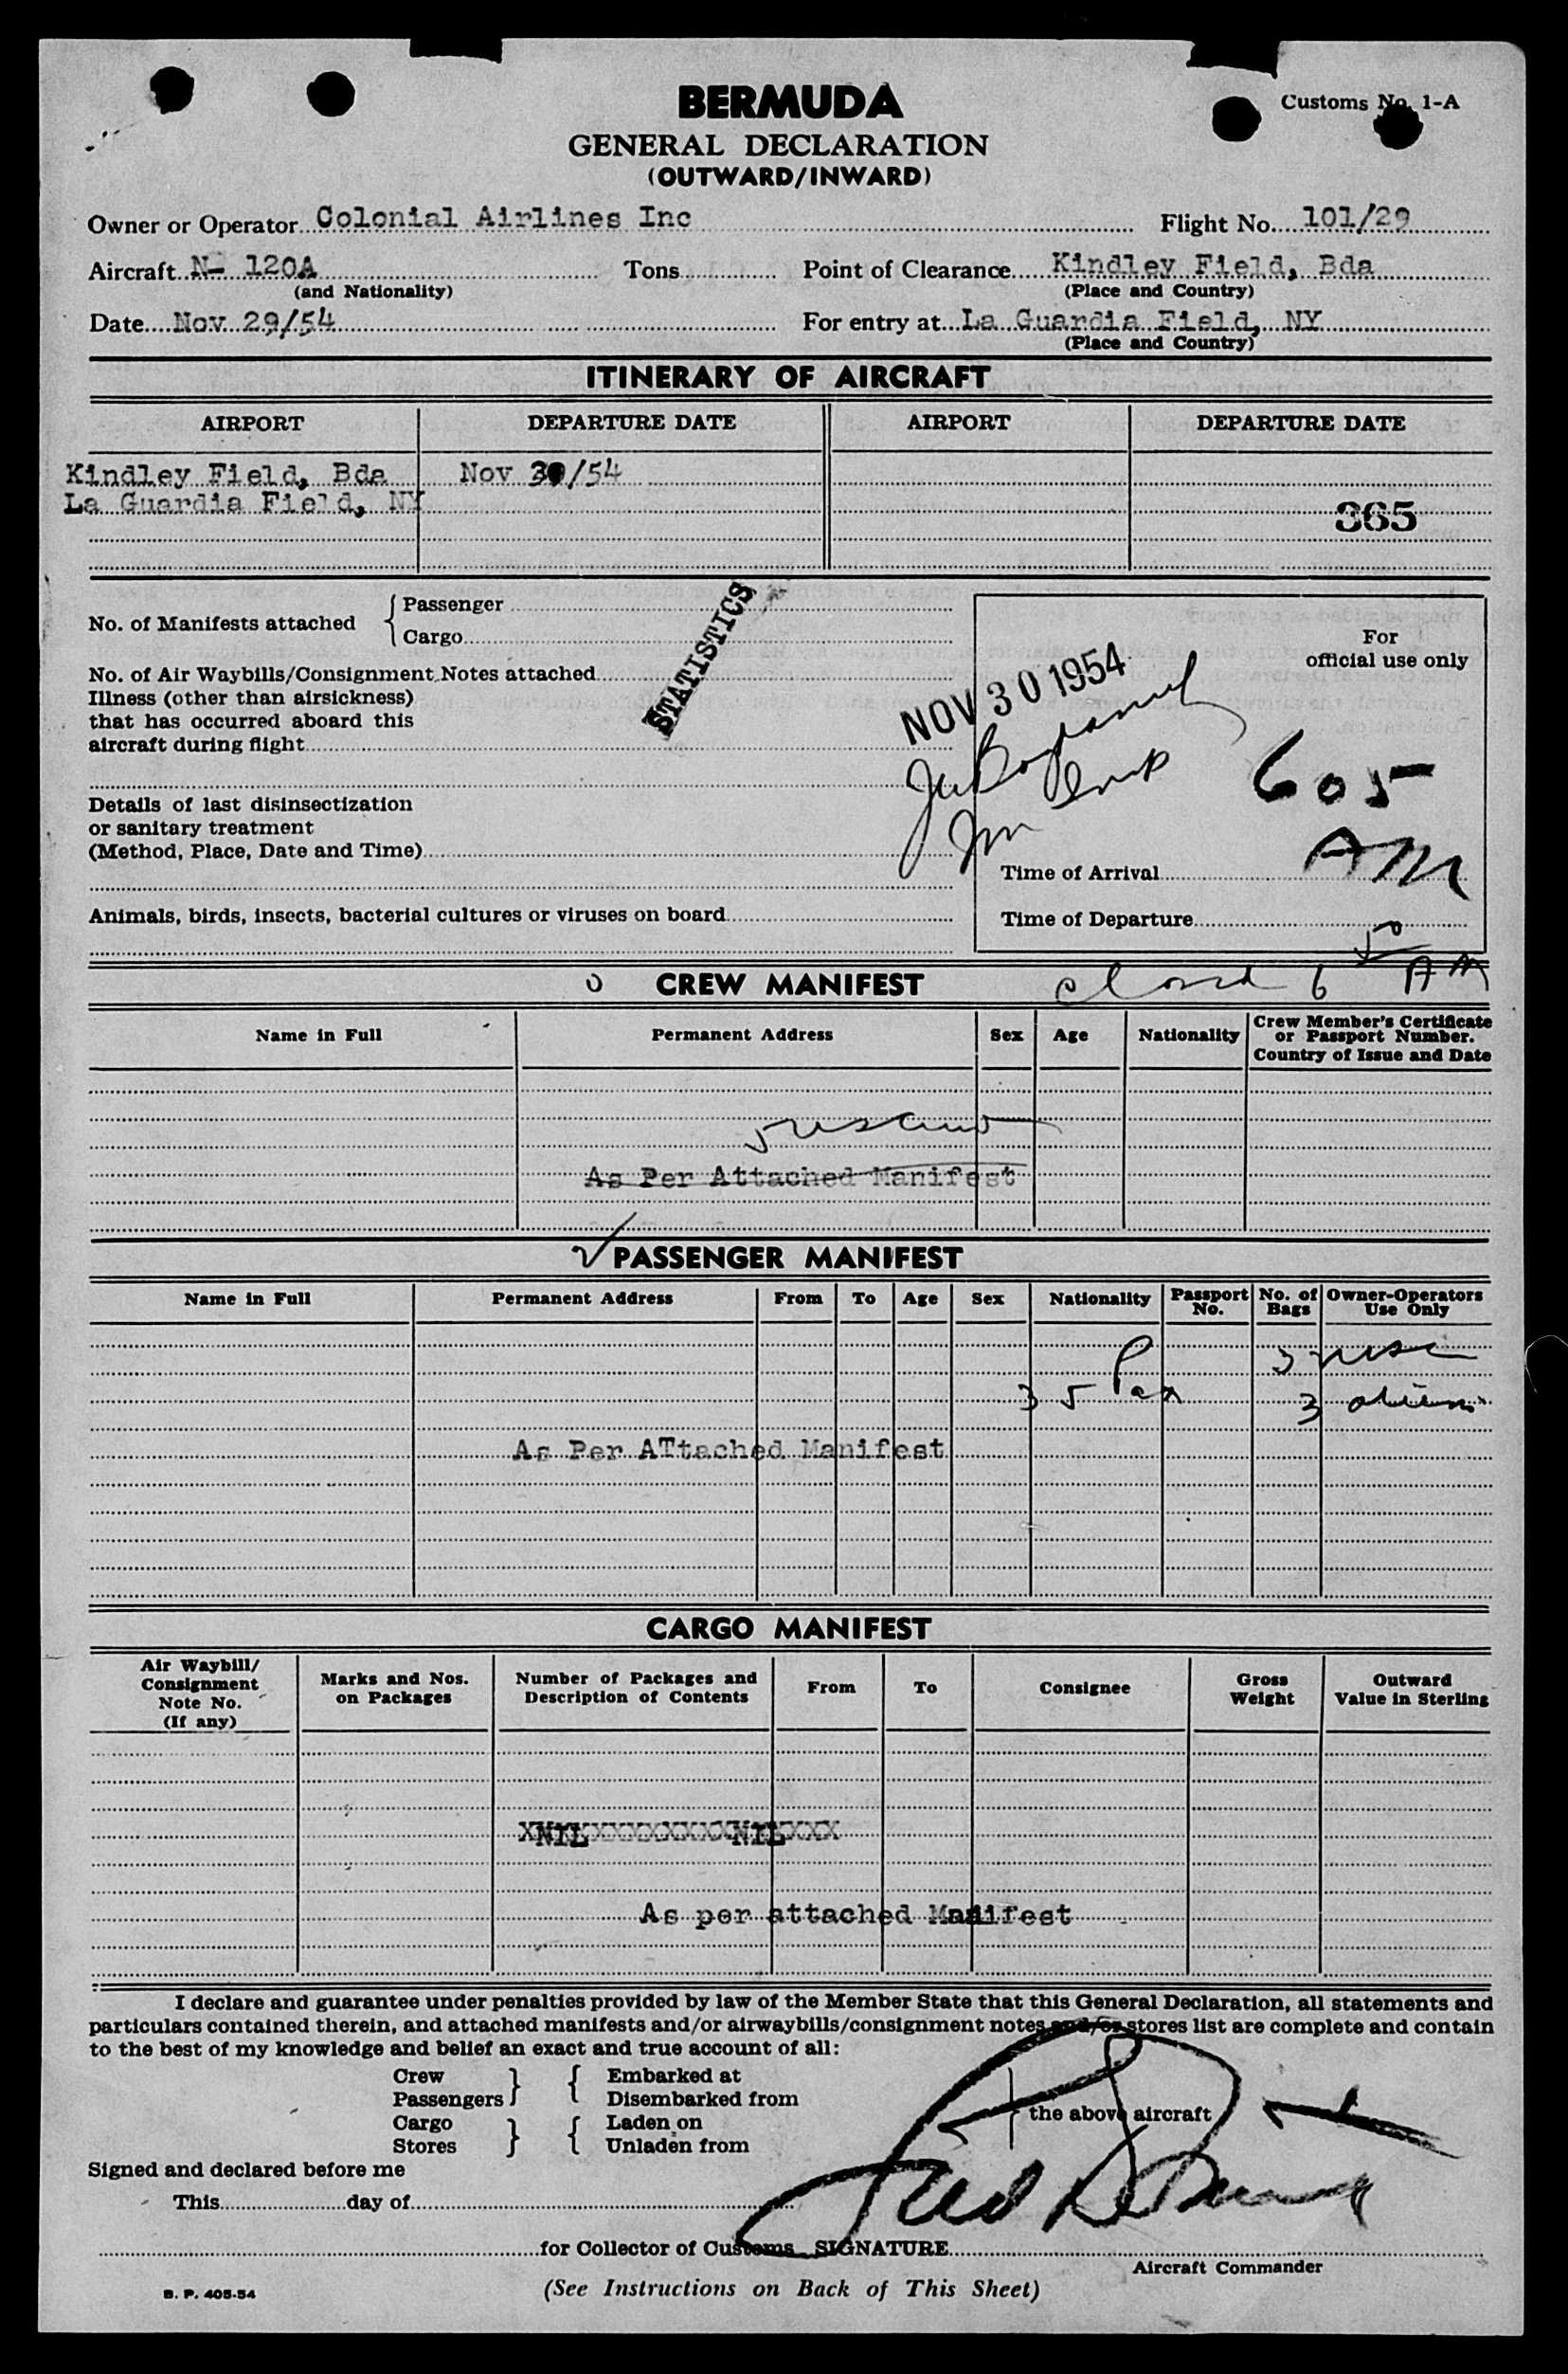 BERMUDA
Customs No. 1-A
GENERAL DECLARATION
(OUTWARD/INWARD)
Owner or Operator Colonial Airlines Inc Flight No. 101/29
Aircraft N- 120A Tons Point of Clearance Kindley Field, Bda
(and Nationality) (Place and Country)
Date Nov 29/54 For entry at La Guardia Field, NY
(Place and Country)
ITINERARY OF AIRCRAFT
AIRPORT DEPARTURE DATE AIRPORT DEPARTURE DATE
Kindley Field, Bda Nov 30/54
La Guardia Field, NY
365
No. of Manifests attached { Passenger
Cargo
STATISTICS
For
official use only
No. of Air Waybills/Consignment Notes attached
Illness (other than airsickness)
that has occurred aboard this
aircraft during flight
NOV 30 1954
605
AM
Details of last disinsectization
or sanitary treatment
(Method, Place, Date and Time)
Time of Arrival
Animals, birds, insects, bacterial cultures or viruses on board
Time of Departure
CREW MANIFEST
closed 6 50 AM
Name in Full Permanent Address Sex Age Nationality Crew Member's Certificate
or Passport Number.
Country of Issue and Date
As Per Attached Manifest
PASSENGER MANIFEST
Name in Full Permanent Address From To Age Sex Nationality Passport No. No. of Bags Owner-Operators Use Only
35 Pax
3 aliens
As Per ATtached Manifest
CARGO MANIFEST
Air Waybill/
Consignment
Note No.
(If any)
Marks and Nos.
on Packages
Number of Packages and
Description of Contents
From To Consignee
Gross
Weight
Outward
Value in Sterling
XNILXXXXXXXXXNILXXX
As per attached Manifest
I declare and guarantee under penalties provided by law of the Member State that this General Declaration, all statements and
particulars contained therein, and attached manifests and/or airwaybills/consignment notes and/or stores list are complete and contain
to the best of my knowledge and belief an exact and true account of all:
Crew } { Embarked at
Passengers Disembarked from
the above aircraft
Cargo } { Laden on
Stores Unladen from
Signed and declared before me
This day of
for Collector of Customs SIGNATURE
Aircraft Commander
B. P. 405-54
(See Instructions on Back of This Sheet)